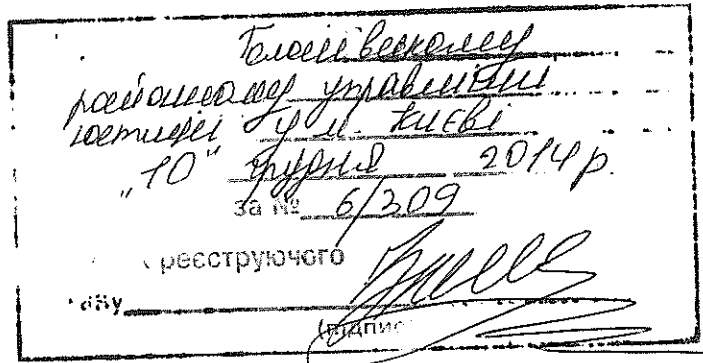 Голосіївському
районному управлінні
юстиції у м. Києві
"10" грудня 2014 р.
за № 6/309
реєструючого
(підпис